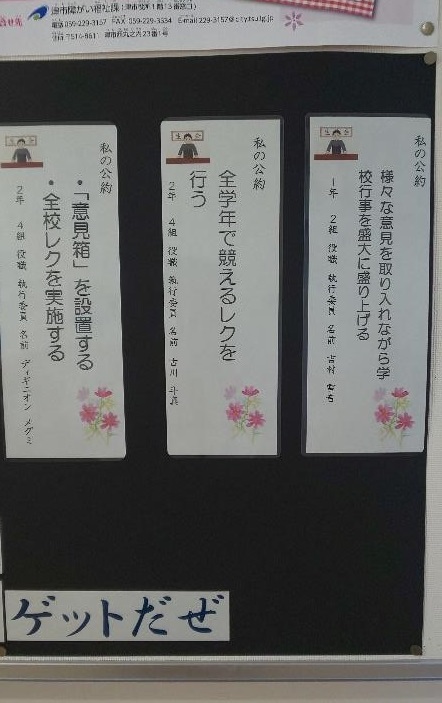 津市障がい福祉課
電話 059-229-3157 FAX 059-229-3334
住所 〒514-8611 津市西丸之内23番1号
私の公約
様々な意見を取り入れながら学
校行事を盛大に盛り上げる
1年 2組 役職 執行委員 名前 吉村
生徒会
私の公約
全学年で競えるレクを
行う
2年 4組 役職 執行委員 名前 古川 斗真
生徒会
私の公約
・「意見箱」を設置する
・全校レクを実施する
2年 4組 役職 執行委員 名前 ディギニオン メグミ
生徒会
ゲットだぜ